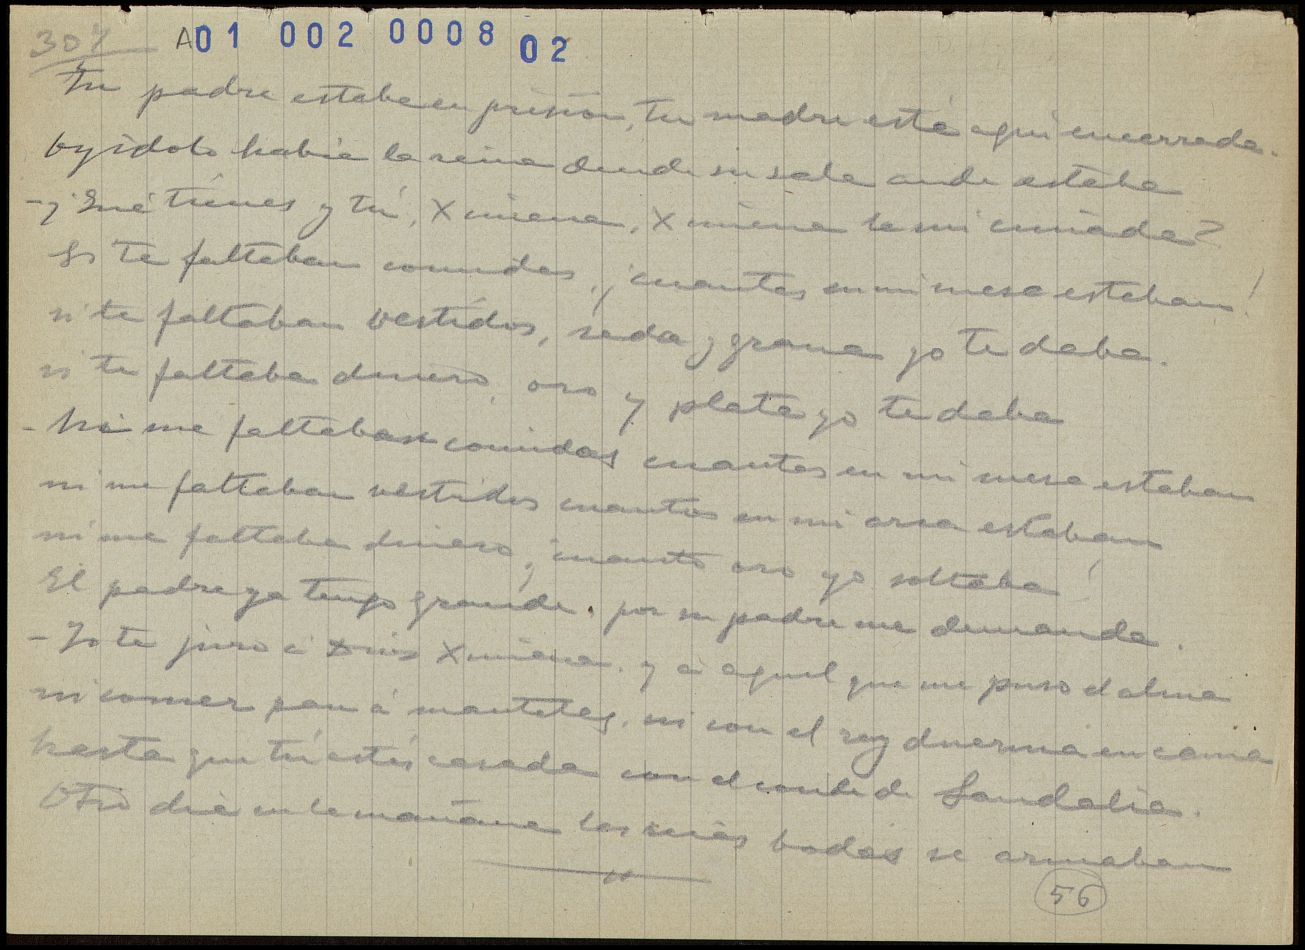 307 A01 002 0008 02
Tu padre estaba en prisión, tu madre está aquí encerrada.
Oyídolo había la reina dende su sala ande estaba
- ¿Qué tienes y tú, Ximena, Ximena la mi cuñada?
Si te faltaban comidas, ¡cuantas en mi mesa estaban!
si te faltaban vestidos, seda y grana yo te daba.
si te faltaba dinero, oro y plata yo te daba
- Ni me faltaban comidas cuantas en mi mesa estaban
ni me faltaban vestidos cuantos en mi arca estaban
ni me faltaba dinero, ¡cuanto oro yo soltaba!
El padre ya tengo grande. por su padre me demanda.
- Yo te juro á Dios Ximena. y á aquel que me puso el alma
ni comer pan á manteles, ni con el rey duerma en cama
hasta que tú estés casada con el conde de Sandalia.
Otro día en la mañana las ricas bodas se armaban
56